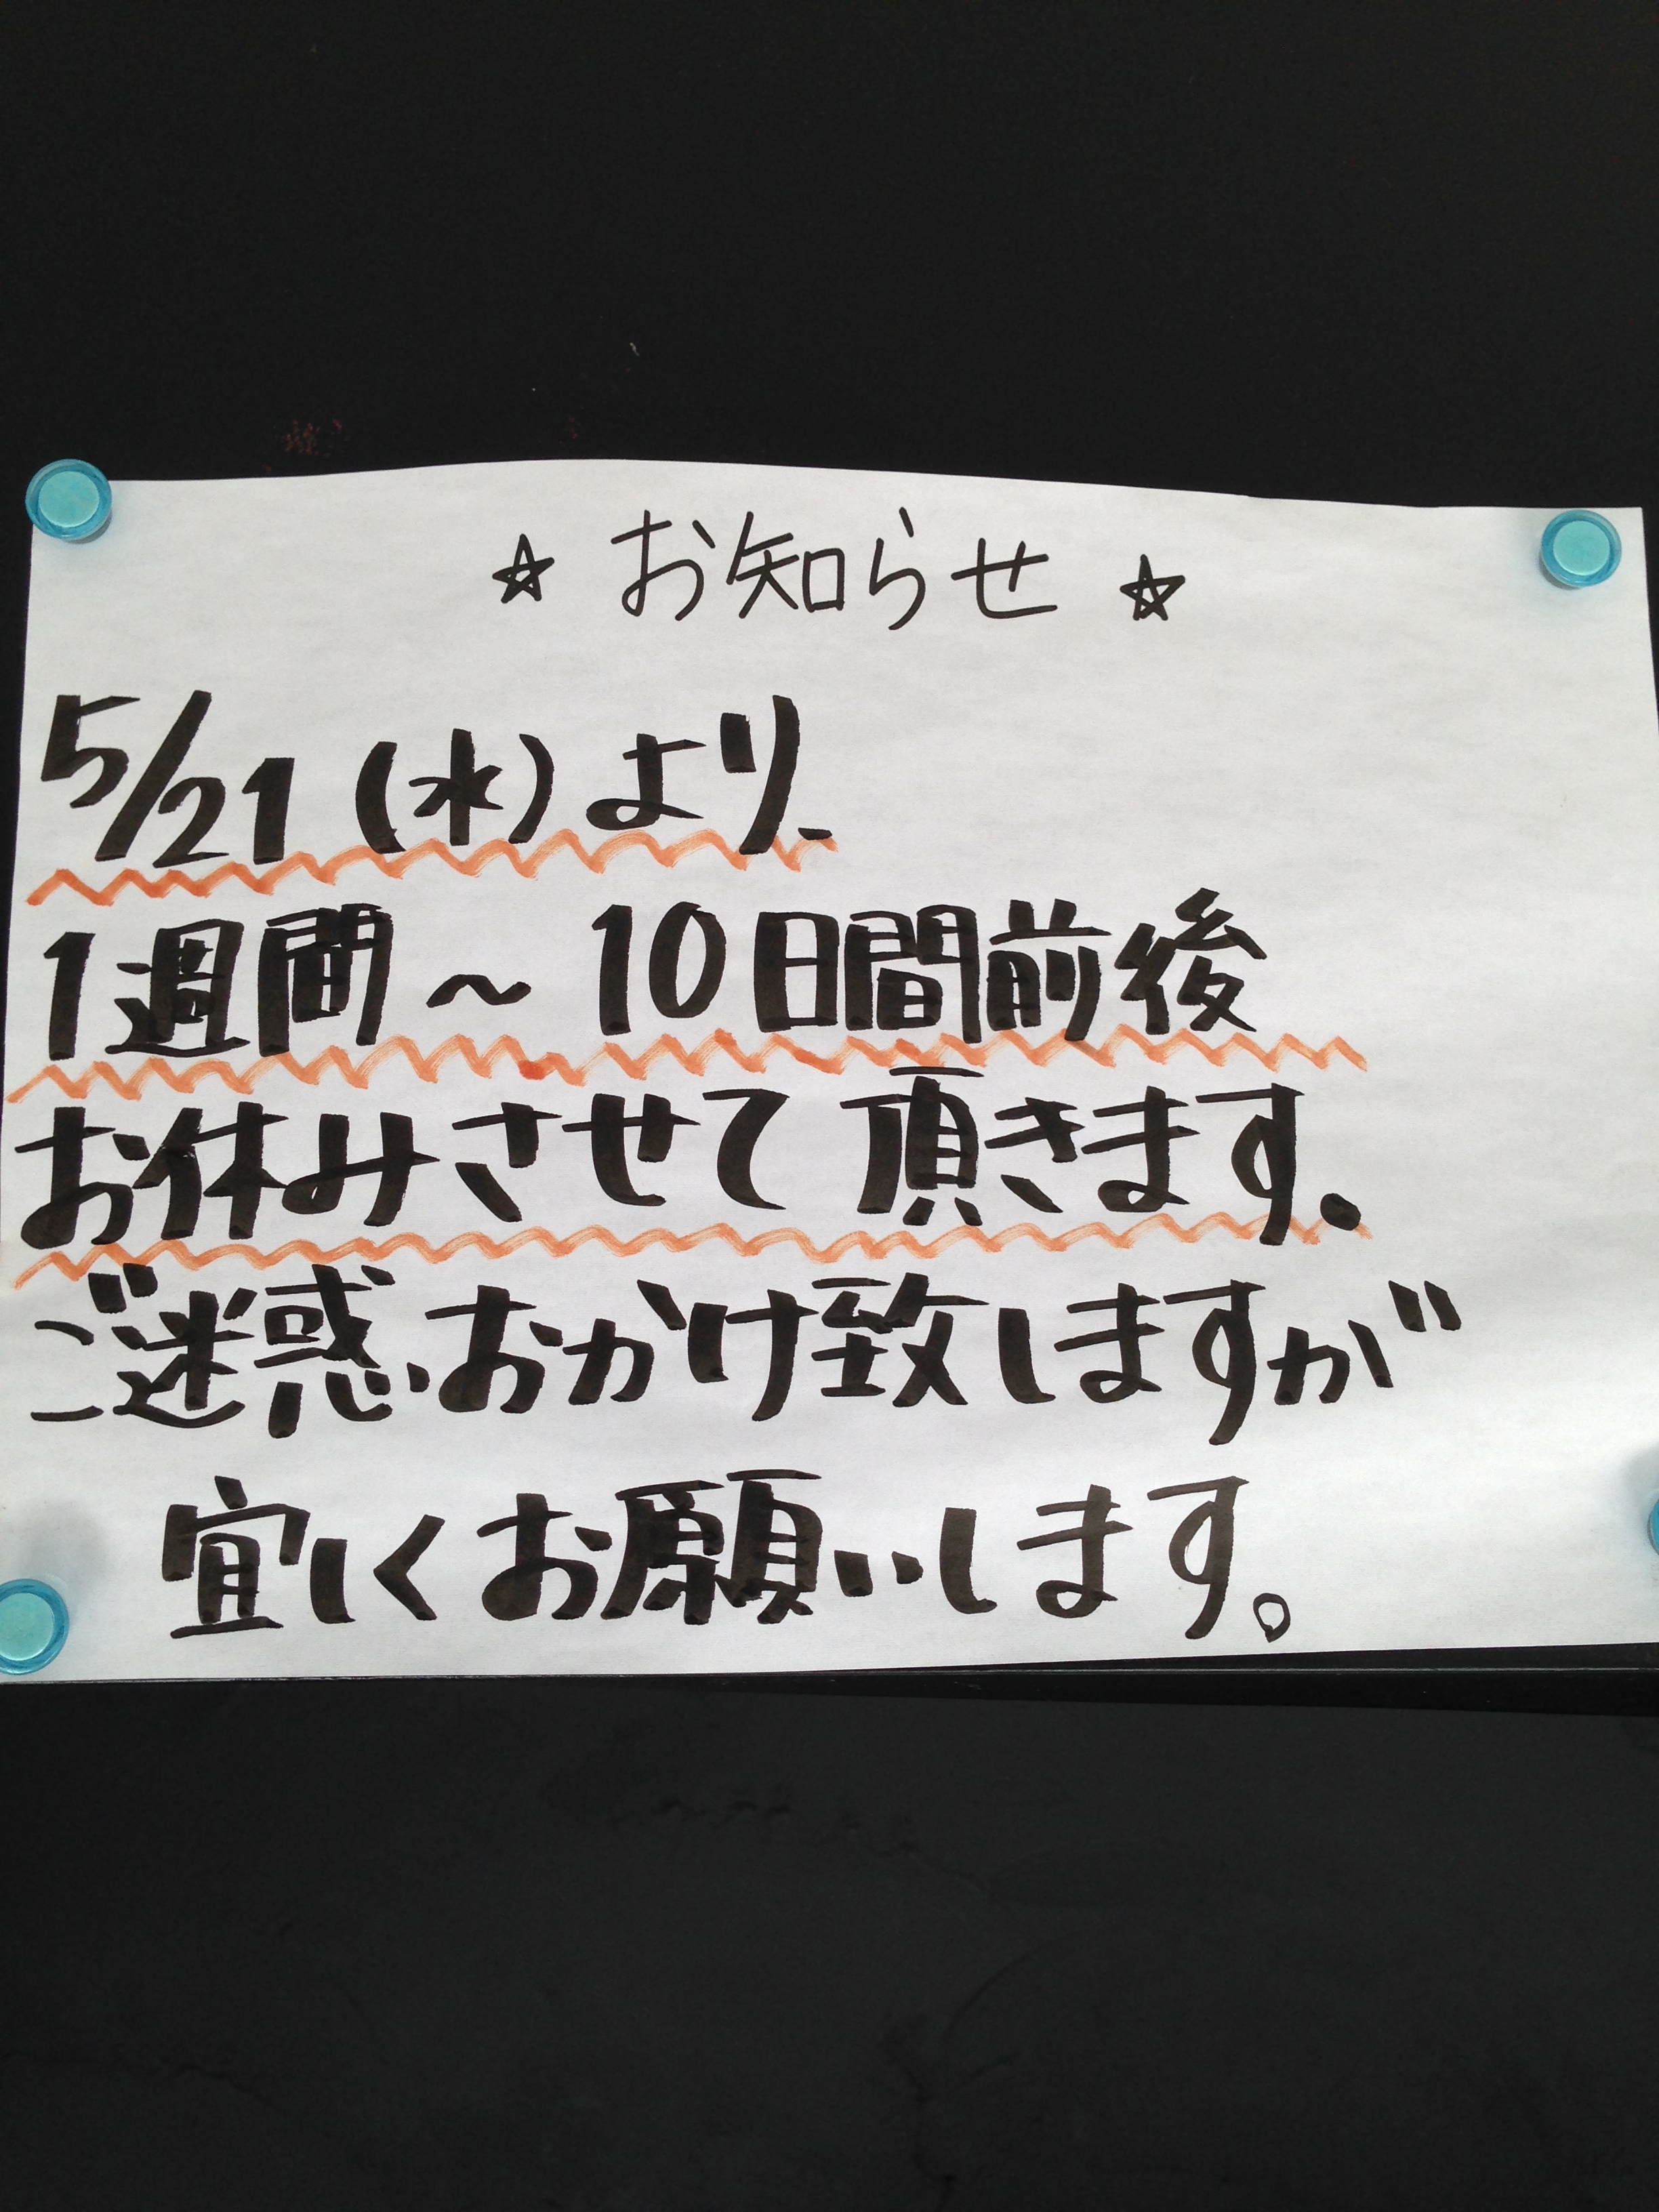 ☆ お知らせ ☆
5/21 (水) より、
1週間 ～ 10日間前後
お休みさせて頂きます。
ご迷惑おかけ致しますが
宜しくお願いします。